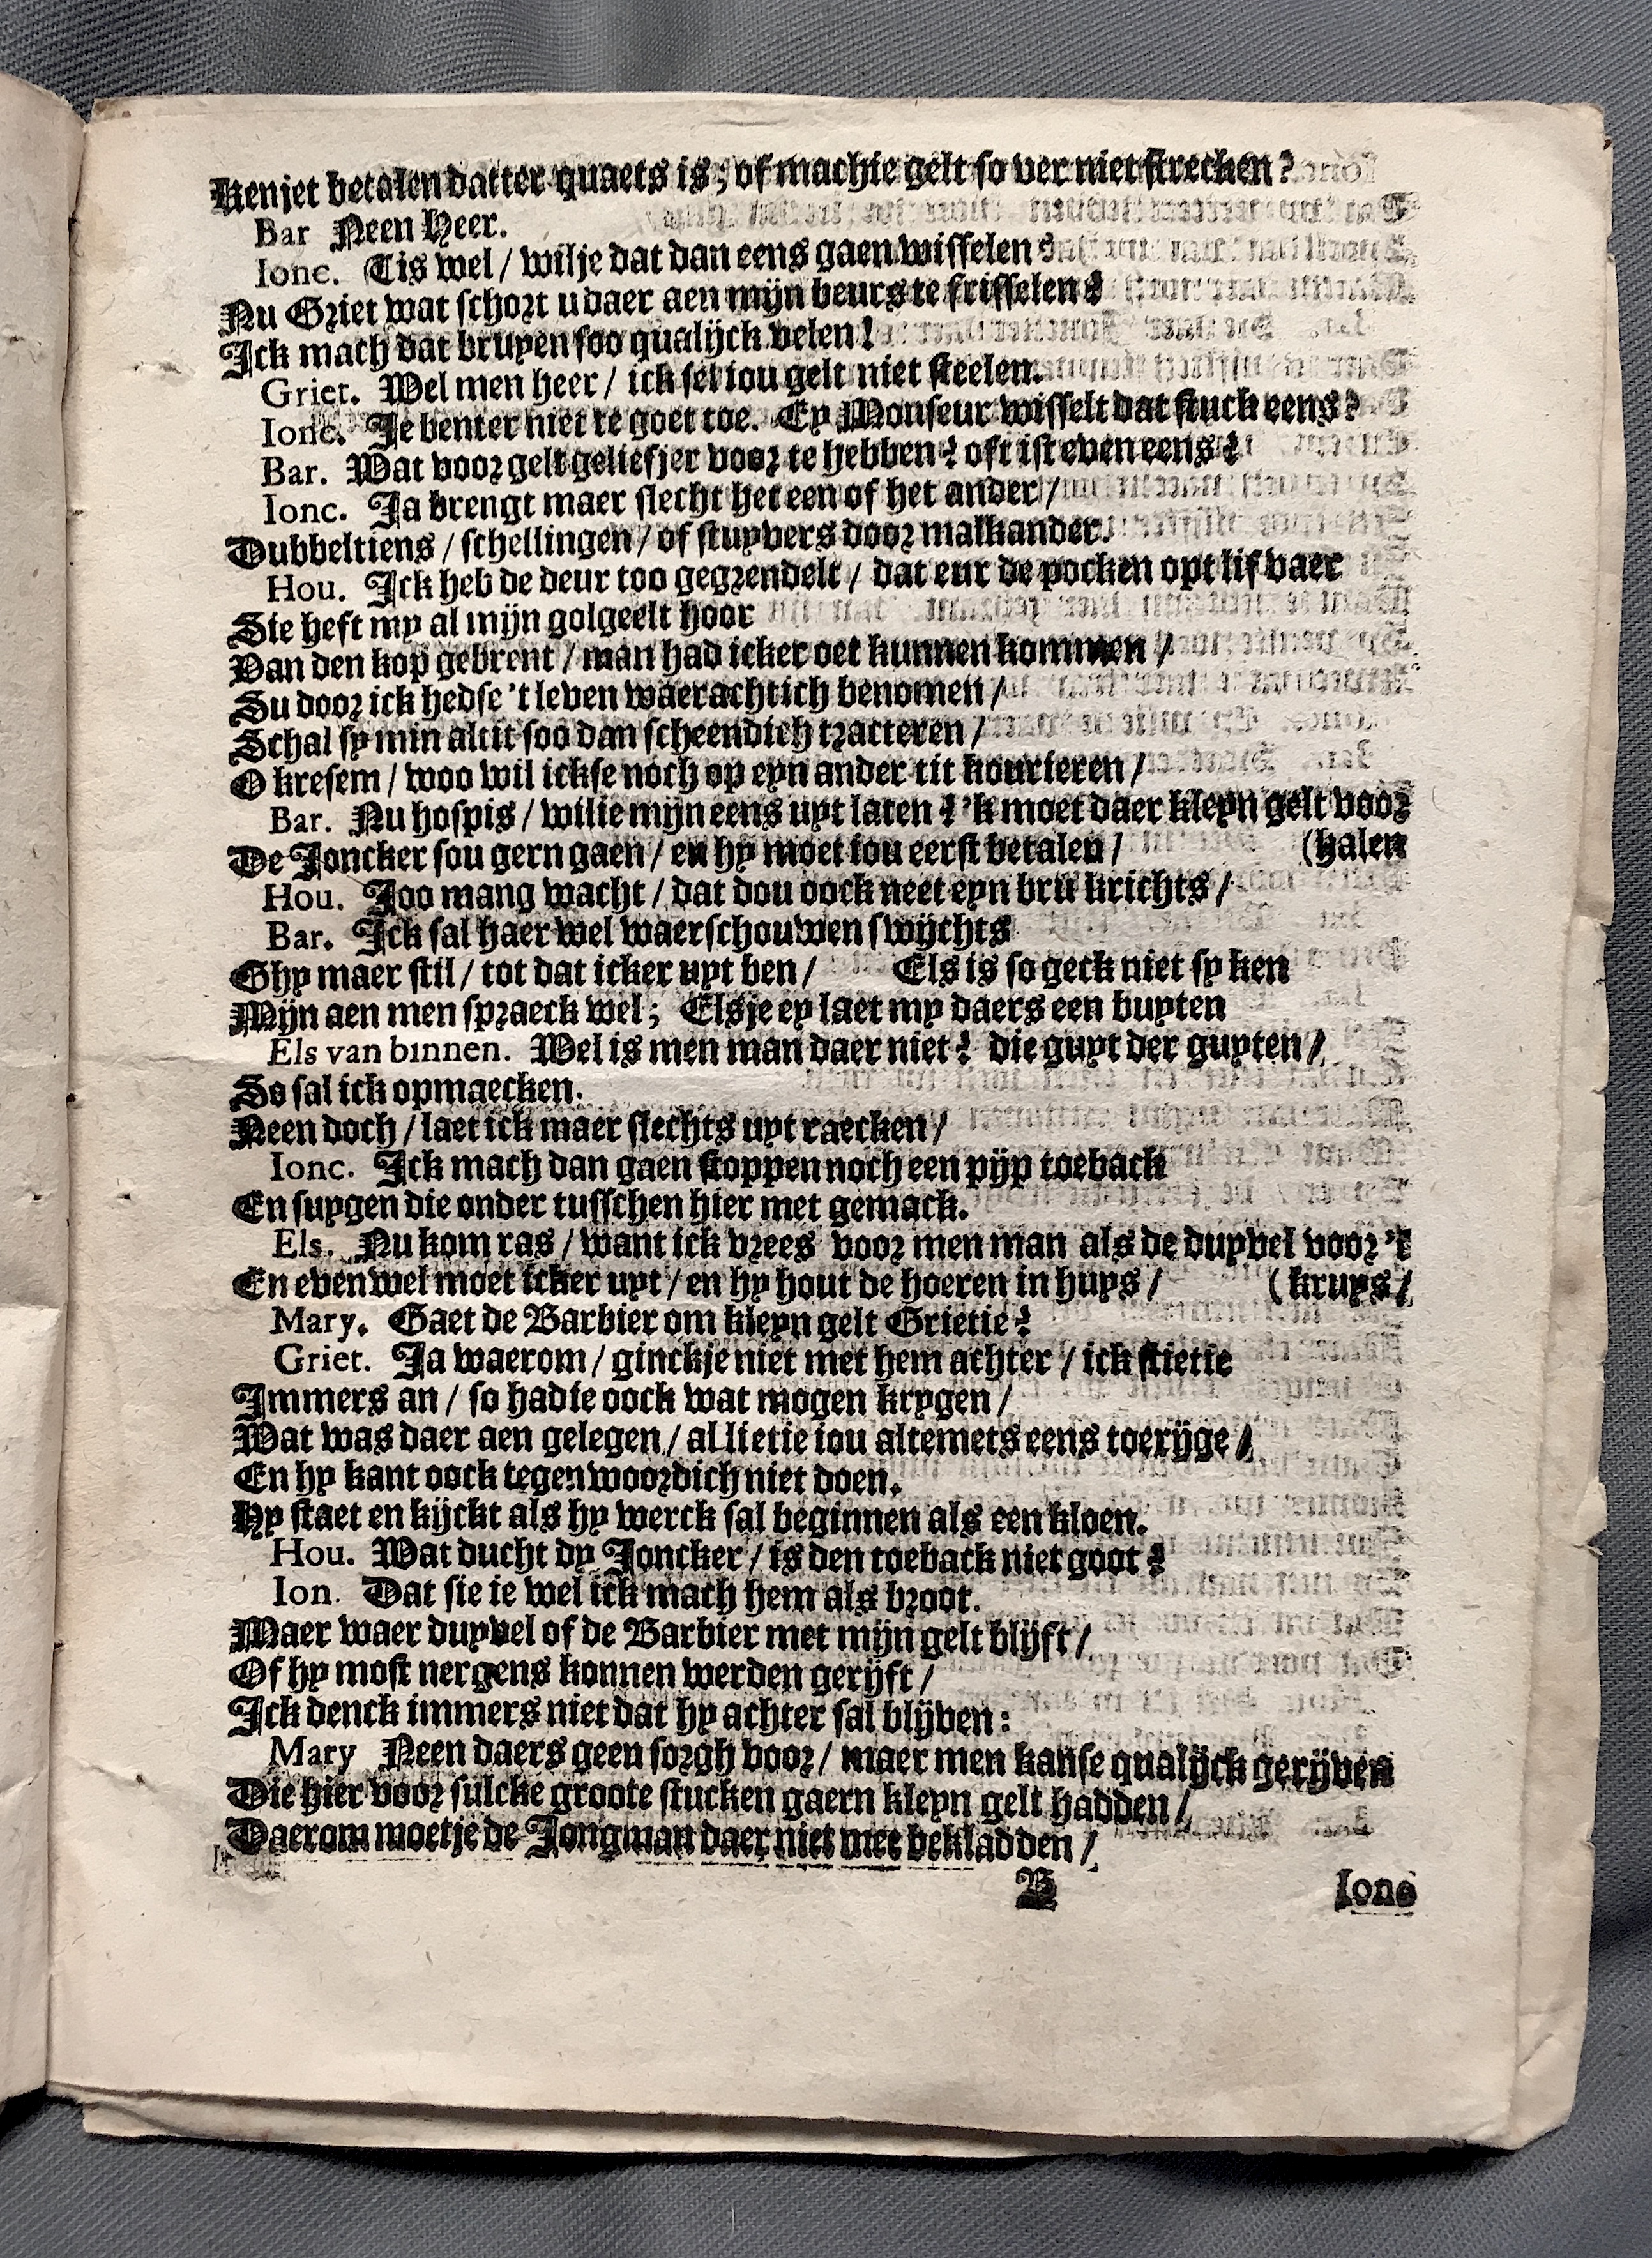 Kenjet betalen datter quaets is; of machje gelt so ver niet strecken?
Bar Neen Heer.
Ionc. Tis wel / wilje dat dan eens gaen wisselen?
Nu Griet wat schort u daer aen mijn beurs te frisselen?
Ick mach dat bruyen soo qualijck velen!
Griet. Wel men heer / ick sel iou gelt niet steelen.
Ionc. Je benter niet te goet toe. Ey Monseur wisselt dat stuck eens?
Bar. Wat voor gelt geliefjer voor te hebben? oft ist even eens?
Ionc. Ja brengt maer slecht het een of het ander /
Dubbeltiens / schellingen / of stuyvers door malkander.
Hou. Ick heb de deur too gegrendelt / dat eur de pocken opt lif vaer
Sie heft my al mijn golgeelt hoor
Van den kop gebrent / man had icker oet kunnen kommen /
Su door ick hedse 't leven waerachtich benomen /
Schal sy min altit soo dan scheendich tracteren /
O kresem / woo wil ickse noch op eyn ander tit kourteren /
Bar. Nu hospis / wilie mijn eens uyt laten? 'k moet daer kleyn gelt voor
De Joncker sou gern gaen / en hy moet iou eerst betalen / (halen
Hou. Joo mang wacht / dat dou oock neet eyn bru krichts /
Bar. Ick sal haer wel waerschouwen swijchts
Ghy maer stil / tot dat icker uyt ben / Els is so geck niet sy ken
Mijn aen men spraeck wel; Elsje ey laet my daers een buyten
Els van binnen. Wel is men man daer niet? die guyt der guyten /
So sal ick opmaecken.
Neen doch / laet ick maer slechts uyt raecken /
Ionc. Ick mach dan gaen stoppen noch een pijp toeback
En suygen die onder tusschen hier met gemack.
Els. Nu kom ras / want ick vrees voor men man als de duyvel voor 't
En evenwel moet icker uyt / en hy hout de hoeren in huys / (kruys /
Mary. Gaet de Barbier om kleyn gelt Grietie?
Griet. Ja waerom / ginckje niet met hem achter / ick stietie
Immers an / so hadie oock wat mogen krygen /
Wat was daer aen gelegen / al lietie iou altemets eens toerijge /
En hy kant oock tegenwoordich niet doen.
Hy staet en kijckt als hy werck sal beginnen als een kloen.
Hou. Wat ducht dy Joncker / is den toeback niet goot?
Ion. Dat sie ie wel ick mach hem als broot.
Maer waer duyvel of de Barbier met mijn gelt blijft /
Of hy most nergens konnen werden gerijft /
Ick denck immers niet dat hy achter sal blijven:
Mary Neen daers geen sorgh voor / maer men kanse qualijck gerijven
Die hier voor sulcke groote stucken gaern kleyn gelt hadden /
Daerom moetje de Jongman daer niet mee bekladden /
B Ionc